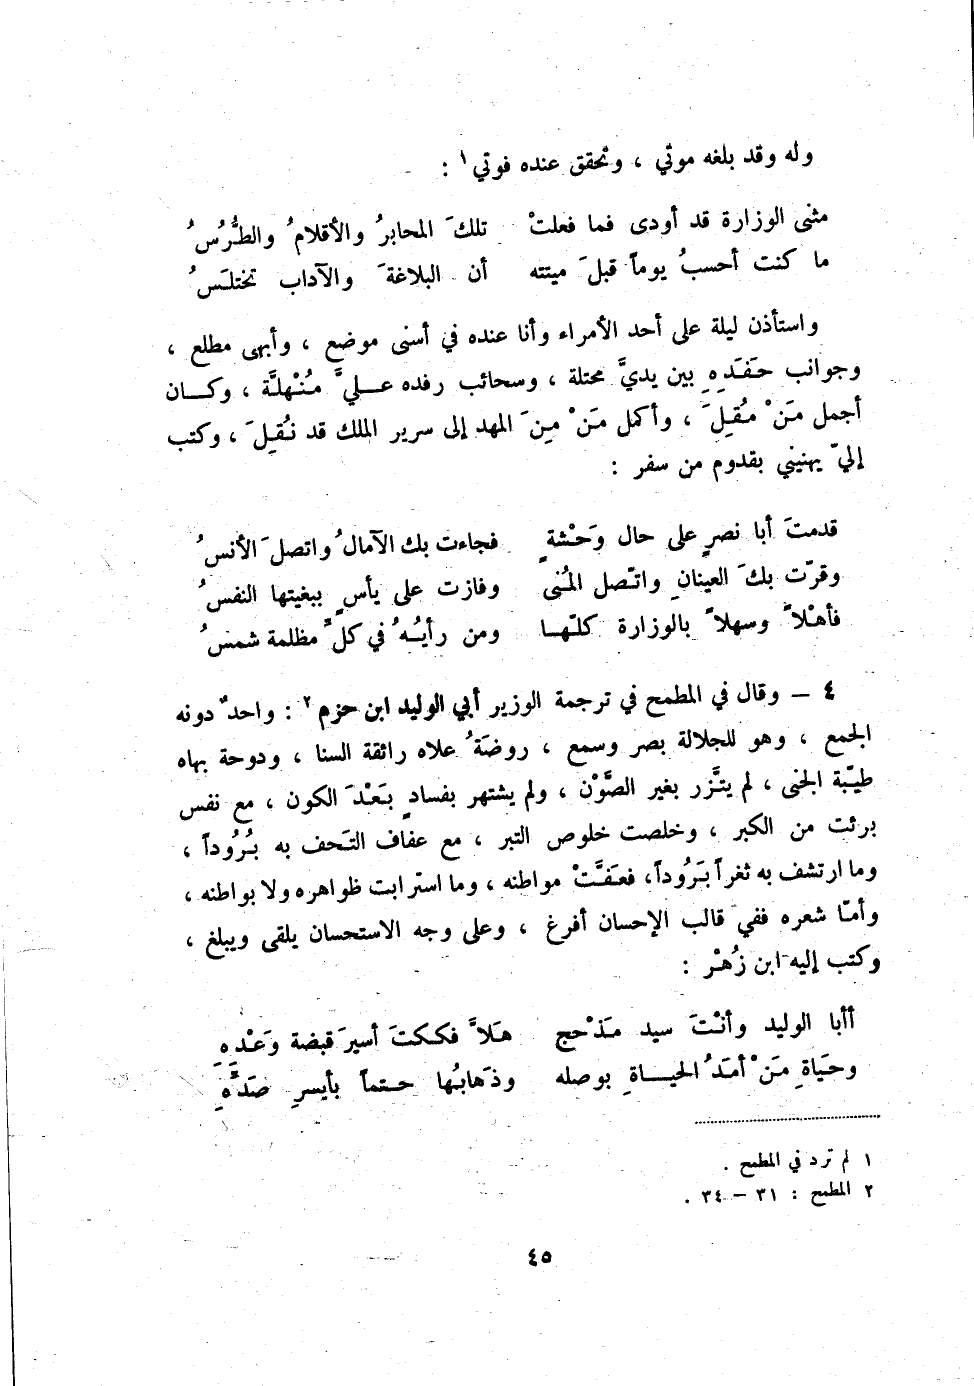 وله وقد بلغه موتي ، وتحقق عنده فوتي ١ :
مثنى الوزارة قد أودى فما فعلتْ تلكَ المحابرُ والأقلامُ والطُّرُسُ
ما كنت أحسبُ يوماً قبلَ ميتته أن البلاغةَ والآداب تختلَسُ
واستأذن ليلة على أحد الأمراء وأنا عنده في أسنى موضع ، وأبهى مطلع ،
وجوانب حَفَدِهِ بين يديَّ محتلة ، وسحائب رفده عليَّ مُنْهلَّة ، وكان
أجمل مَنْ مُقِلَ ، وأكمل مَنْ مِنَ المهد إلى سرير الملك قد نُقِلَ ، وكتب
إليّ يهنيني بقدوم من سفر :
قدمتَ أبا نصرٍ على حال وَحْشةٍ فجاءت بك الآمالُ واتصلَ الأنسُ
وقرّت بكَ العينانِ واتّصل المُنى وفازت على يأسٍ ببغيتها النفسُ
فأهْلاً وسهلاً بالوزارة كلّها ومن رأيُهُ في كلّ مظلمة شمسُ
٤ – وقال في المطمح في ترجمة الوزير أبي الوليد ابن حزم ٢ : واحدٌ دونه
الجمع ، وهو للجلالة بصر وسمع ، روضَةُ علاه رائقة السنا ، ودوحة بهاه
طيّبة الجنى ، لم يتَّزر بغير الصَّوْن ، ولم يشتهر بفسادٍ بَعْدَ الكون ، مع نفس
برئت من الكبر ، وخلصت خلوص التبر ، مع عفاف التَحف به بُرُوداً ،
وما ارتشف به ثغراً بَرُوداً، فعَفَّتْ مواطنه ، وما استرابت ظواهره ولا بواطنه ،
وأمّا شعره ففي قالب الإحسان أفرغ ، وعلى وجه الاستحسان يلقى ويبلغ ،
وكتب إليه ابن زُهْر :
أأبا الوليد وأنْتَ سيد مَذْحج هَلاَّ فككتَ أسيرَ قبضة وَعْدِهِ
وحَيَاةِ مَنْ أمَدُ الحياةِ بوصله وذَهابُها حتماً بأيسرِ صَدِّهِ
١ لم ترد في المطمح .
٢ المطمح : ٣١ – ٣٤ .
٤٥